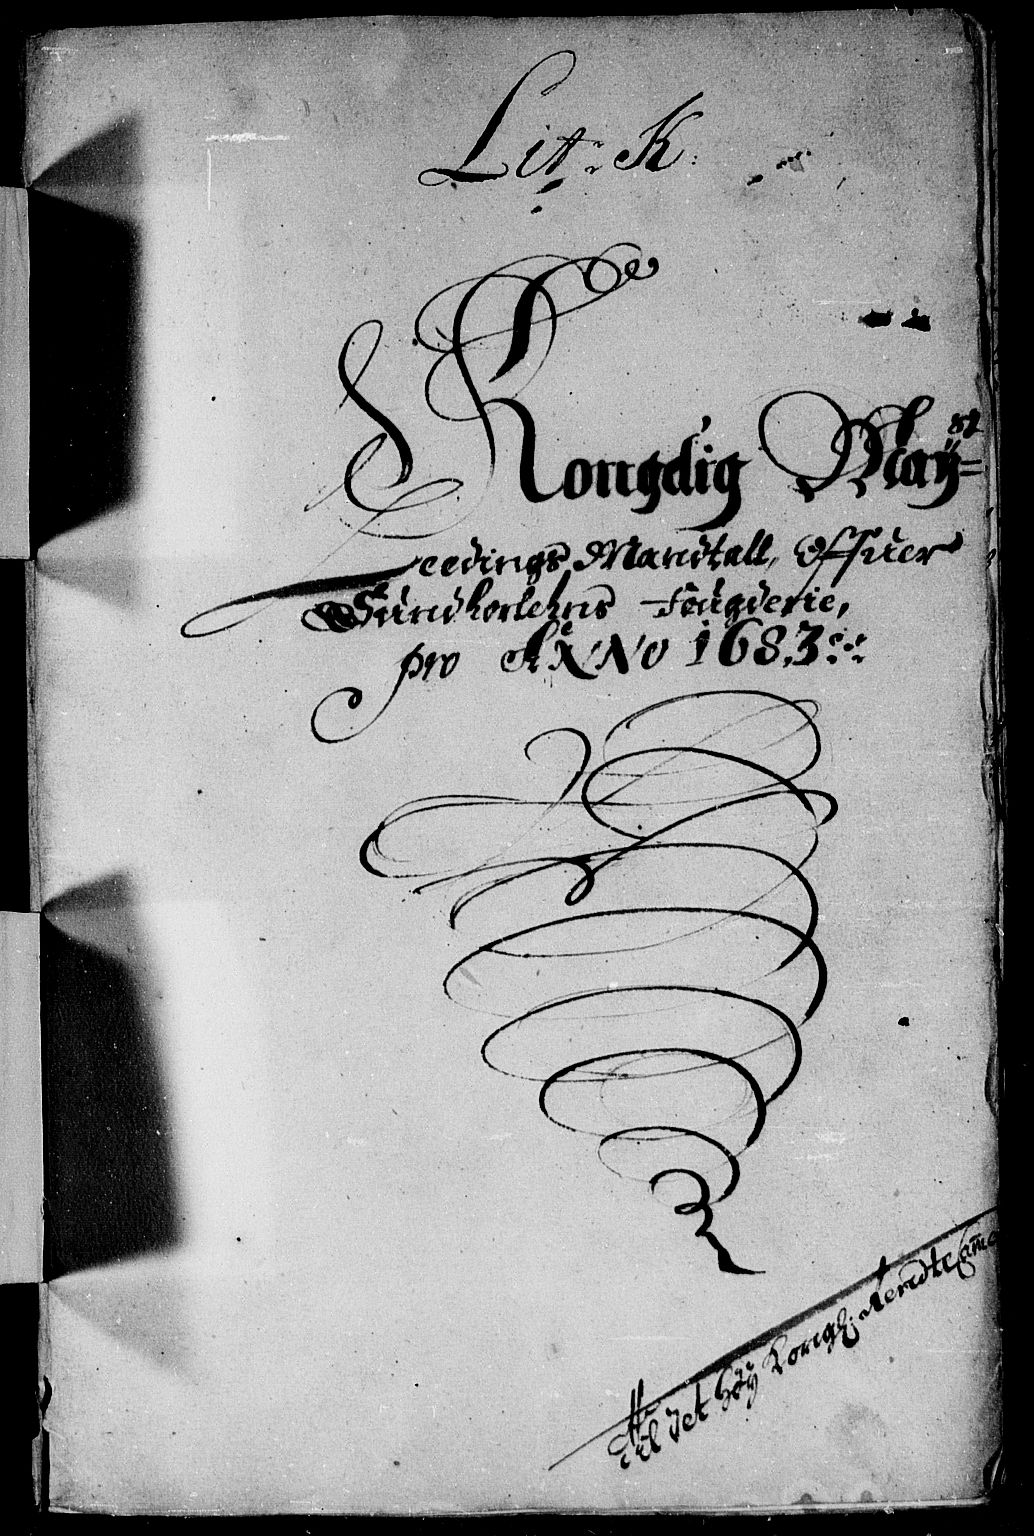 Lit: K:
Kongelig Maÿ=st
Leedings Mandtall, Offuer
Sundhorlehns Fougderie,
pro ANNO 1683
Til Det Höÿ Kongl: Rendte Cam̄e